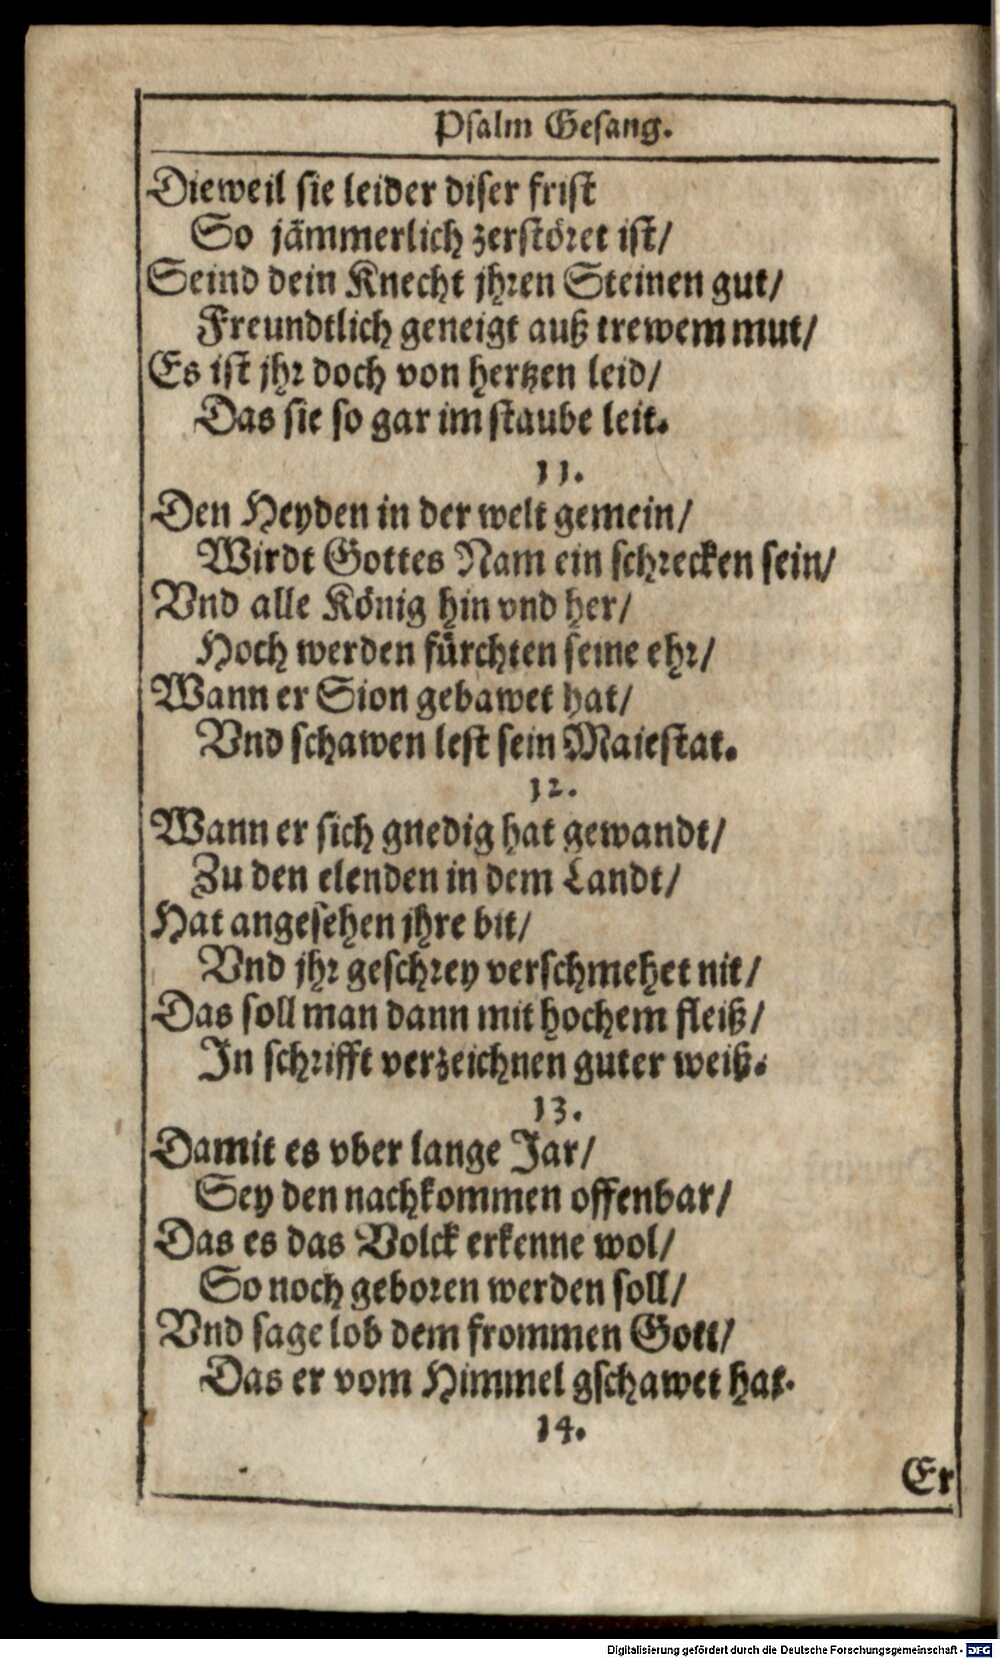 Psalm Gesang.
Dieweil sie leider diser frist
So jämmerlich zerstöret ist/
Seind dein Knecht jhren Steinen gut/
Freundtlich geneigt auß trewem mut/
Es ist jhr doch von hertzen leid/
Das sie so gar im staube leit.
11.
Den Heyden in der welt gemein/
Wirdt Gottes Nam ein schrecken sein/
Vnd alle König hin vnd her/
Hoch werden fürchten seine ehr/
Wann er Sion gebawet hat/
Vnd schawen lest sein Maiestat.
12.
Wann er sich gnedig hat gewandt/
Zu den elenden in dem Landt/
Hat angesehen jhre bit/
Vnd jhr geschrey verschmehet nit/
Das soll man dann mit hochem fleiß/
In schrifft verzeichnen guter weiß.
13.
Damit es vber lange Jar/
Sey den nachkommen offenbar/
Das es das Volck erkenne wol/
So noch geboren werden soll/
Vnd sage lob dem frommen Gott/
Das er vom Himmel gschawet hat.
14.
Er
Digitalisierung gefördert durch die Deutsche Forschungsgemeinschaft - DFG